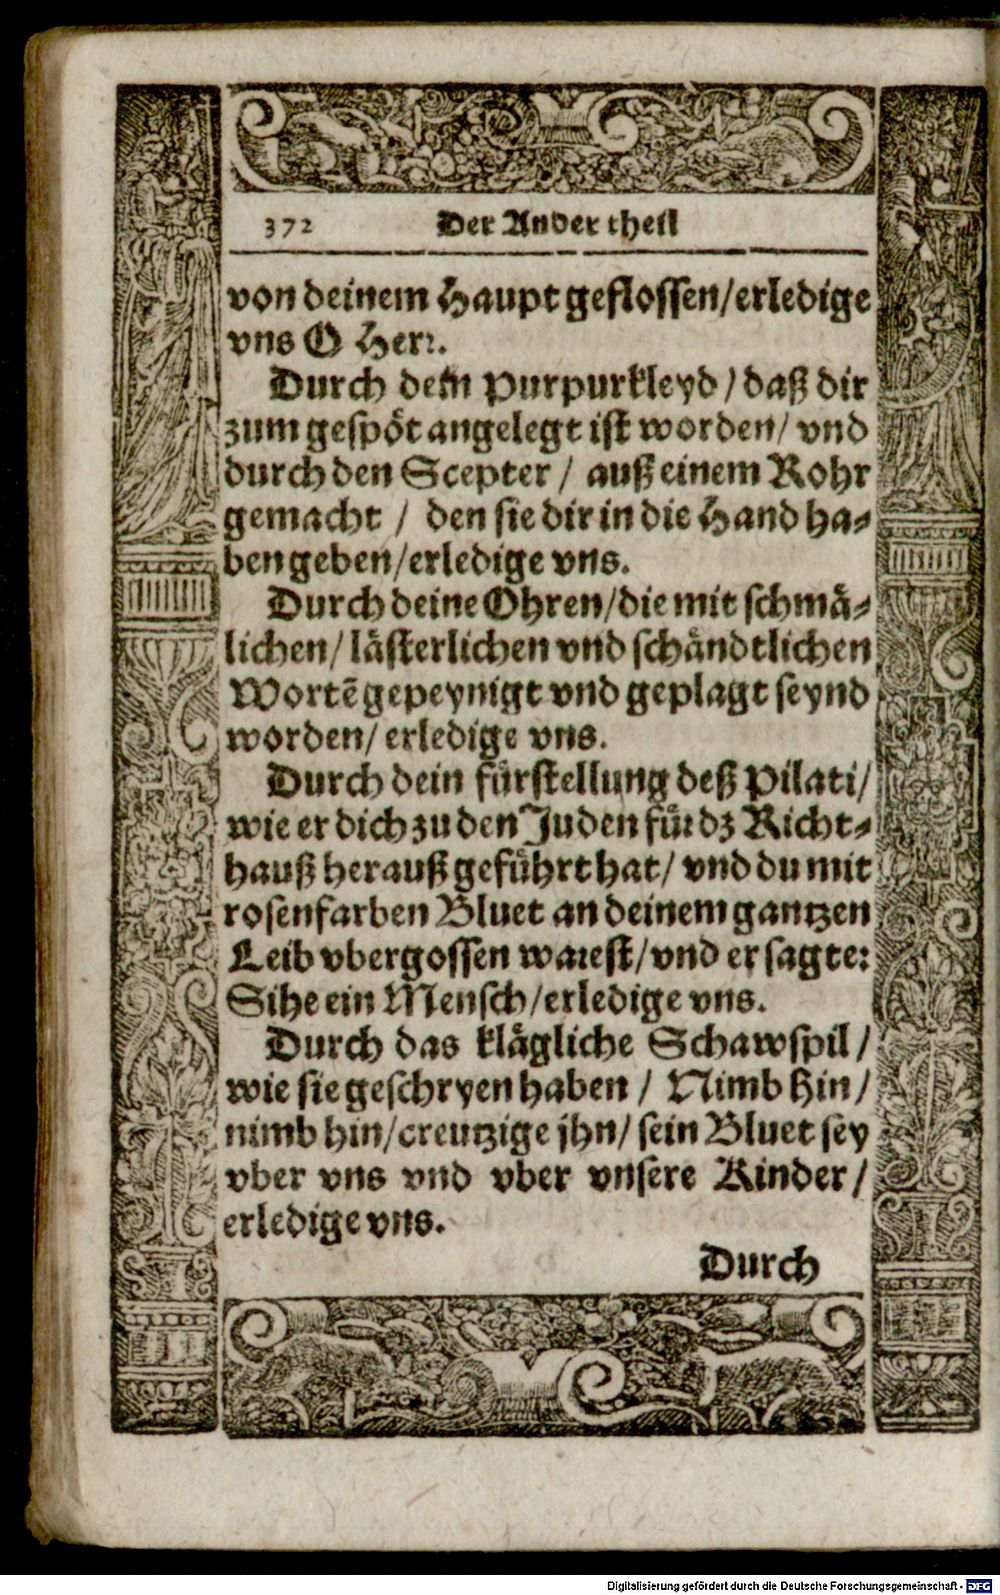 372 Der Ander theil
von deinem Haupt geflossen/erledige
vns O Herr.
Durch dein Purpurkleyd / daß dir
zum gespöt angelegt ist worden/ vnd
durch den Scepter / auß einem Rohr
gemacht / den sie dir in die Hand ha⸗
ben geben/erledige vns.
Durch deine Ohren/die mit schmä⸗
lichen/ lästerlichen vnd schändtlichen
Wortē gepeynigt vnd geplagt seynd
worden/ erledige vns.
Durch dein fürstellung deß Pilati/
wie er dich zu den Juden für dz Richt⸗
hauß herauß geführt hat/ vnd du mit
rosenfarben Bluet an deinem gantzen
Leib vbergossen warest/vnd er sagte:
Sihe ein Mensch/erledige vns.
Durch das klägliche Schawspil /
wie sie geschryen haben / Nimb hin/
nimb hin/creutzige jhn/ sein Bluet sey
vber vns vnd vber vnsere Kinder/
erledige vns.
Durch
Digitalisierung gefördert durch die Deutsche Forschungsgemeinschaft - DFG